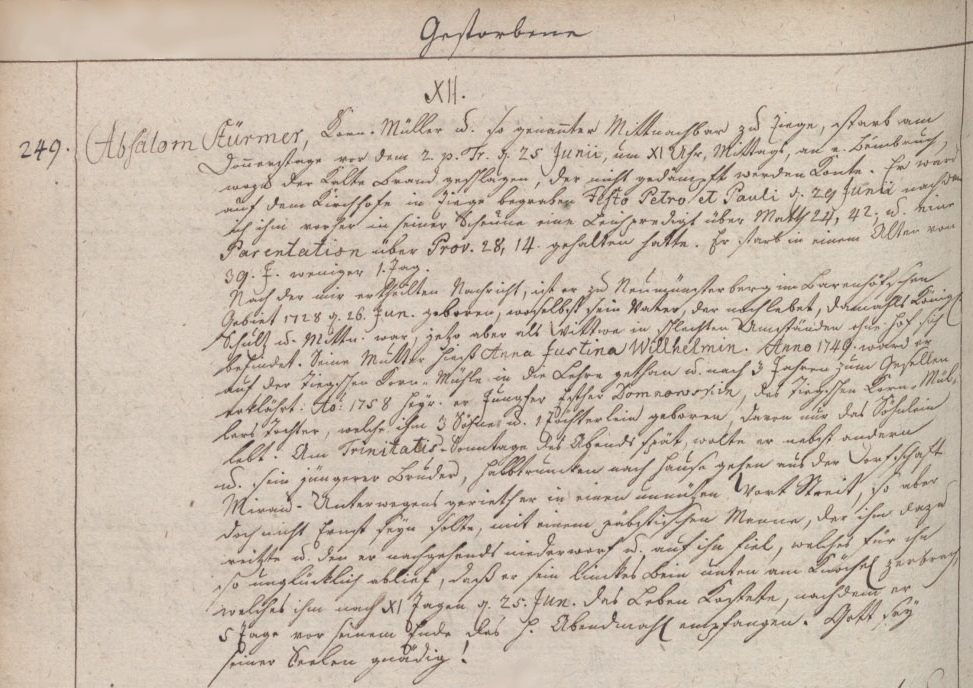 Gestorbene
XII.
249. Absalom Stürmer, Korn-Müller u. so genannter Mittnachbar zu Ziege, starb am
Donnerstage vor dem 2. p. Tr. d. 25 Junii, um XI Uhr, Mittags, an e. Beinbruch,
wozu der Kalte Brand geschlagen, der nicht gedämpft werden konte. Er ward
auf dem Kirchhofe in Ziege begraben Festo Petri et Pauli d. 29 Junii nachdem
ich ihm vorher in seiner Scheune eine Leichpredigt über Matth 24, 42. u. eine
Parentation über Prov. 28, 14. gehalten hatte. Er starb in einem Alter von
39. J. weniger 1. Tag.
Nach der mir ertheilten Nachricht, ist er zu Neumünsterberg im Bärenhöfschen
Gebiet 1728 d. 26. Jun. geboren, woselbst sein Vater, der noch lebet, damahls
Schultz u. Mittn. war, jetzo aber als Wittwer in schlechten Umständen ohne Hof sich
befindet. Seine Mutter hiess Anna Justina Willhelmin. Anno 1749. ward er
auf der Ziegschen Korn-Mühle in die Lehre gethan u. nach 3 Jahren zum Gesellen
erklährt. Ao: 1758 heyr. er Jungfer Esther Domnowskin, des Ziegschen Korn-Mül-
lers Tochter, welche ihm 3 Söhne u. 1 Töchterlein geboren, davon nur das Söhnlein
lebt. Am Trinitatis-Sonntage des Abends spät, wolte er nebst andern
u. sein jüngerer Bruder, halbtruncken nach Hause gehen aus der Dorfschaft
Mirau. Unterwegens gerieth er in einen unnützen Wort Streit, so aber
doch nicht Ernst seyn solte, mit einem päbstischen Manne, der ihn dazu
reitzte u. den er nachgehends niederworf u. auf ihn fiel, welches für ihn
so unglücklich ablief, dass er sein linckes Bein unten am Knöchel zerbrach,
welches ihm nach XI Tagen d. 25. Jun. das Leben kostete, nachdem er
5 Tage vor seinem Ende das H. Abendmahl empfangen. Gott sey
seiner Seelen gnädig!